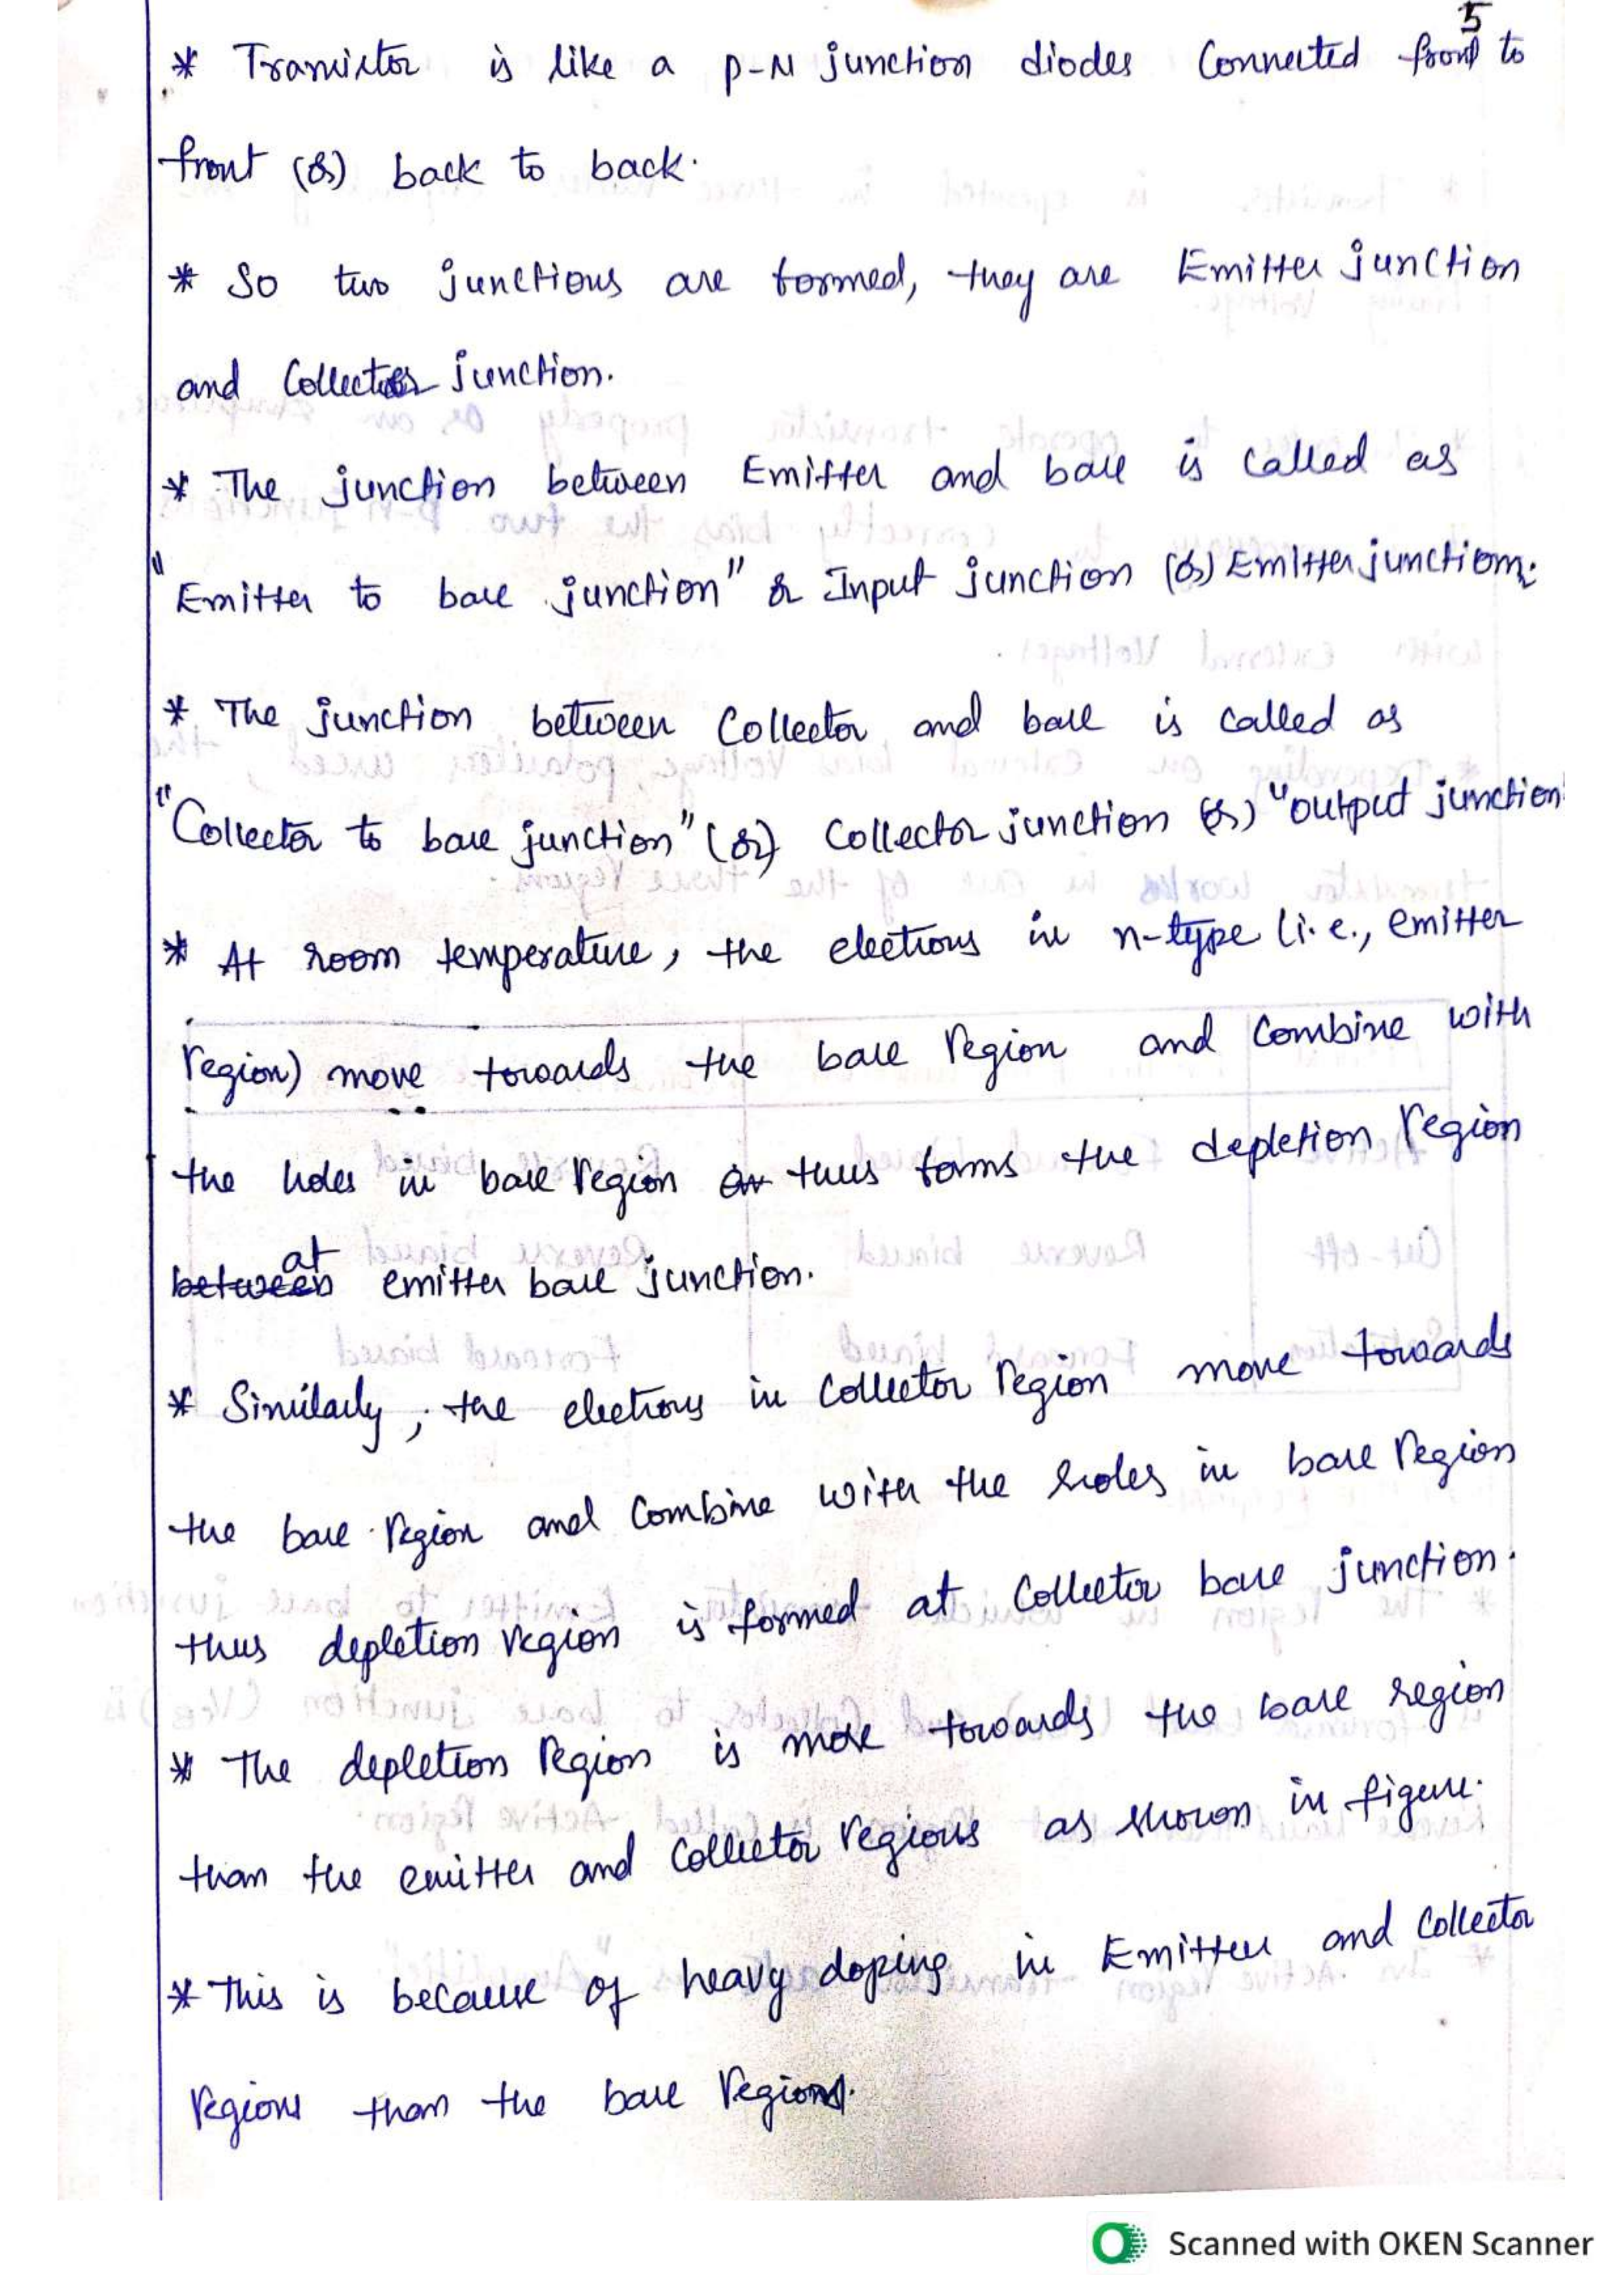 5
* Transistor is like a p-N junction diodes Connected front to
front (or) back to back.
* So two junctions are formed, they are Emitter junction
and Collector junction.
* The junction between Emitter and base is called as
"Emitter to base junction" or Input junction (or) Emitter junction.
* The junction between Collector and base is called as
"Collector to base junction" (or) Collector junction (or) "output junction"
* At room temperature, the electrons in n-type (i.e., emitter
region) move towards the base region and Combine with
the holes in base region thus forms the depletion region
at emitter base junction.
* Similarly, the electrons in Collector region move towards
the base region and Combine with the holes in base region
thus depletion region is formed at Collector base junction.
* The depletion region is more towards the base region
than the emitter and Collector regions as shown in figure.
* This is because of heavy doping in Emitter and Collector
regions than the base region.
Scanned with OKEN Scanner